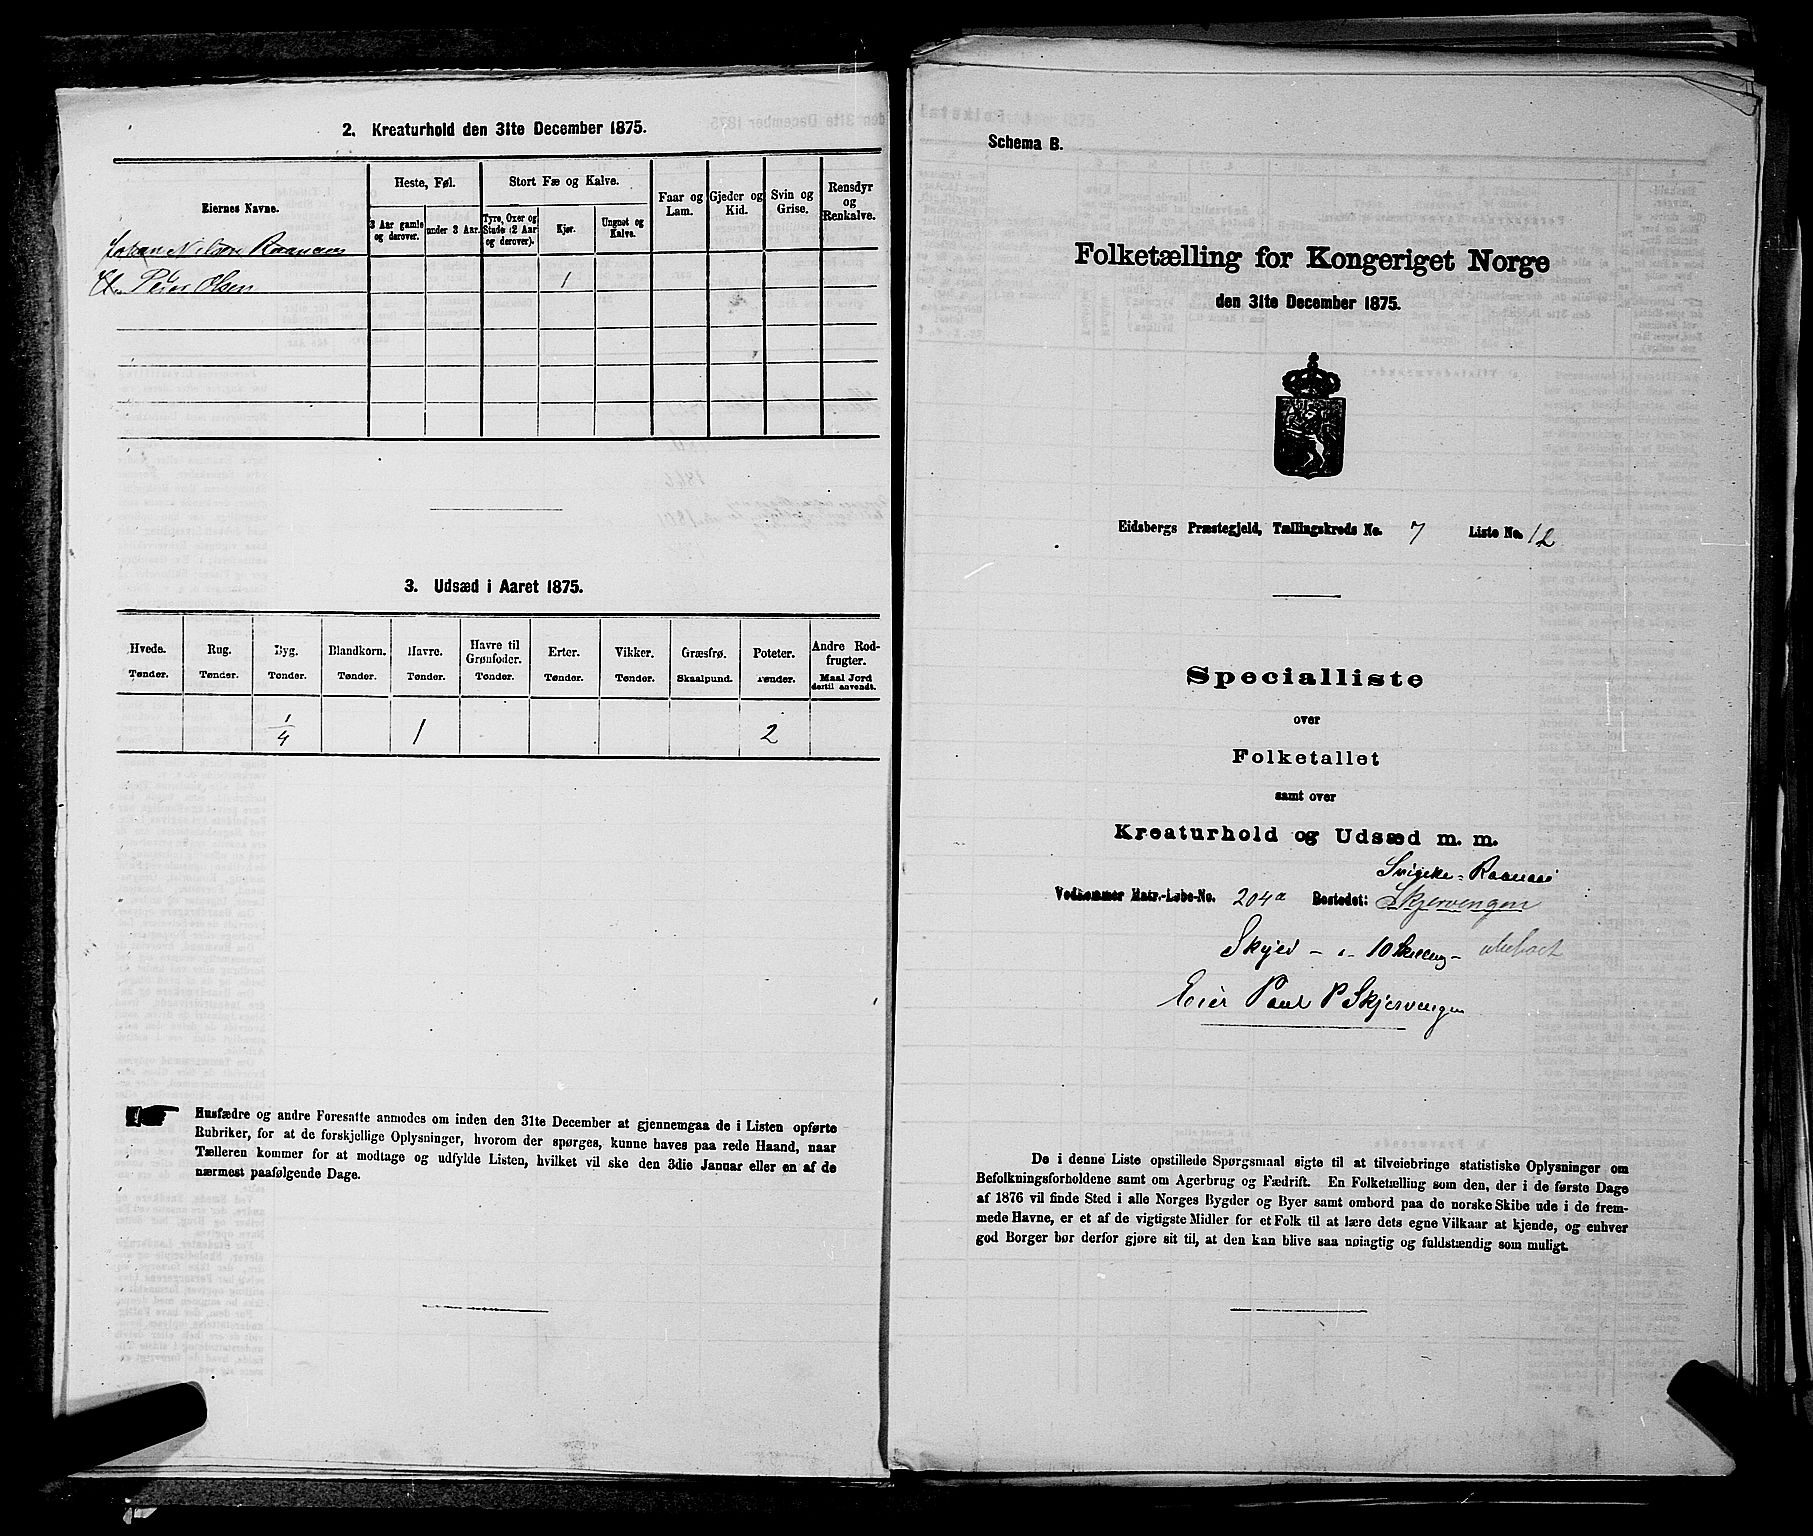 2. Kreaturhold den 31te December 1875.
Eiernes Navne.
Heste, Føl.
Stort Fæ og Kalve.
Faar og Lam.
Gjeder og Kid.
Svin og Grise.
Rensdyr og Renkalve.
3 Aar gamle og derover.
under 3 Aar.
Tyre, Oxer og Stude (2 Aar og derover).
Kjør.
Ungnøt og Kalve.
Johan Nilsen
Peter Olsen 1
3. Udsæd i Aaret 1875.
Hvede. Rug. Byg. Blandkorn. Havre. Havre til Grønfoder. Erter. Vikker. Græsfrø. Poteter. Andre Rodfrugter.
Tønder. Tønder. Tønder. Tønder. Tønder. Tønder. Tønder. Tønder. Skaalpund. Tønder. Maal Jord dertil anvendt.
1/4 1 2
Husfædre og andre Foresatte anmodes om inden den 31te December at gjennemgaa de i Listen opførte
Rubriker, for at de forskjellige Oplysninger, hvorom der spørges, kunne haves paa rede Haand, naar
Tælleren kommer for at modtage og udfylde Listen, hvilket vil ske den 3die Januar eller en af de
nærmest paafølgende Dage.
Schema B.
Folketælling for Kongeriget Norge
den 31te December 1875.
Eidsbergs Præstegjeld, Tællingskreds No. 7 Liste No. 12
Specialliste
over
Folketallet
samt over
Kreaturhold og Udsæd m. m.
Vedkommer Matr.-Løbe-No. 204a Bostedet: Skjervengen
Eier Paul P Skjervengen
De i denne Liste opstillede Spørgsmaal sigte til at tilveiebringe statistiske Oplysninger om
Befolkningsforholdene samt om Agerbrug og Fædrift. En Folketælling som den, der i de første Dage
af 1876 vil finde Sted i alle Norges Bygder og Byer samt ombord paa de norske Skibe ude i de frem-
mede Havne, er et af de vigtigste Midler for et Folk til at lære dets egne Vilkaar at kjende, og enhver
god Borger bør derfor gjøre sit til, at den kan blive saa nøiagtig og fuldstændig som muligt.